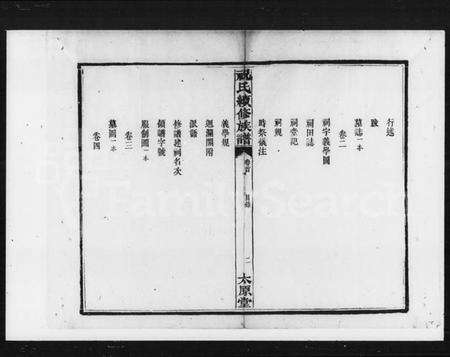 行述
跋
墓誌一本
卷二
祠宇義學圖
祠田誌
祠堂記
祠規
時祭儀注
祝氏續修族譜
卷首
目錄
二
太原堂
義學規
迴瀾閣附
派語
修譜建祠名次
領譜字號
服制圖一本
卷三
墓圖一本
卷四
FamilySearch